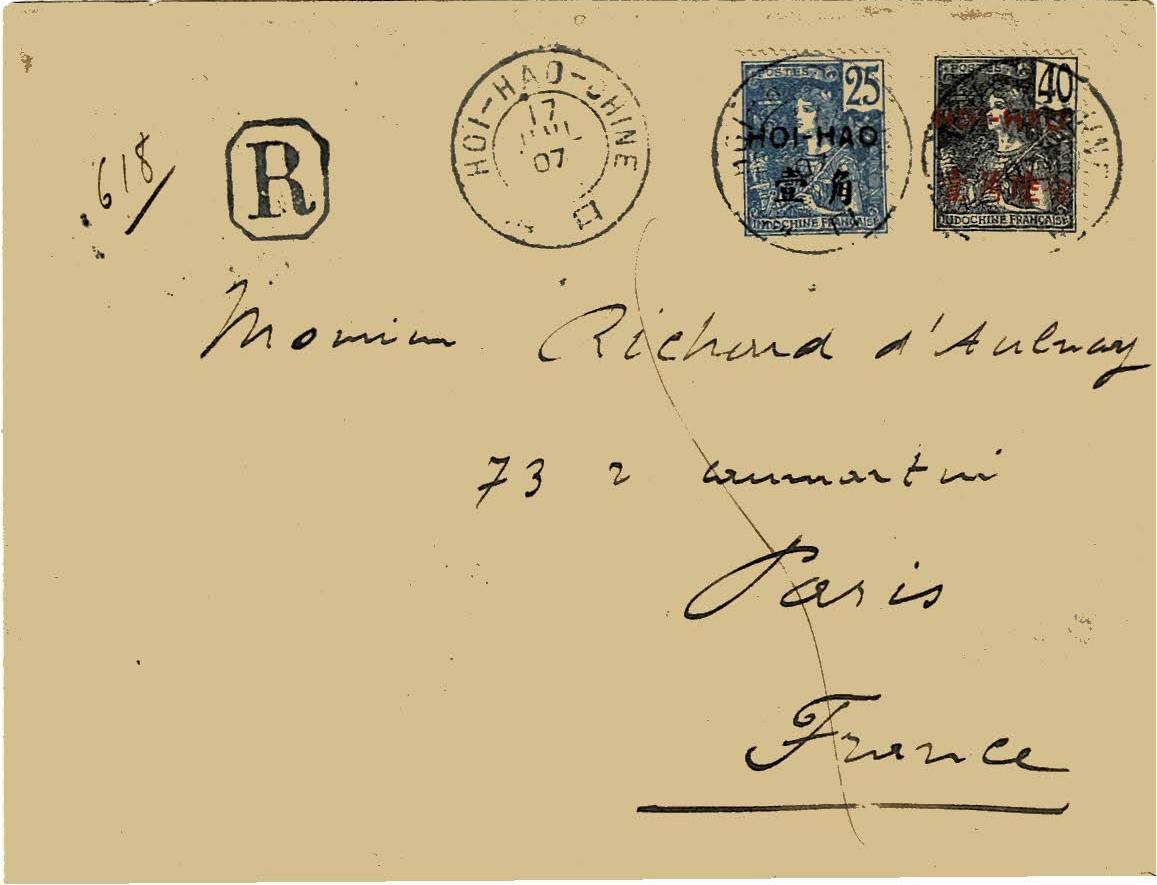 618
R
HOI-HAO-CHINE
17
JUIL
07
POSTES 25
HOI-HAO
壹角
INDOCHINE FRANÇAISE
POSTES 40
HOI-HAO
INDOCHINE FRANÇAISE
Monsieur Richard d'Aulnay
73 r caumartin
Paris
France